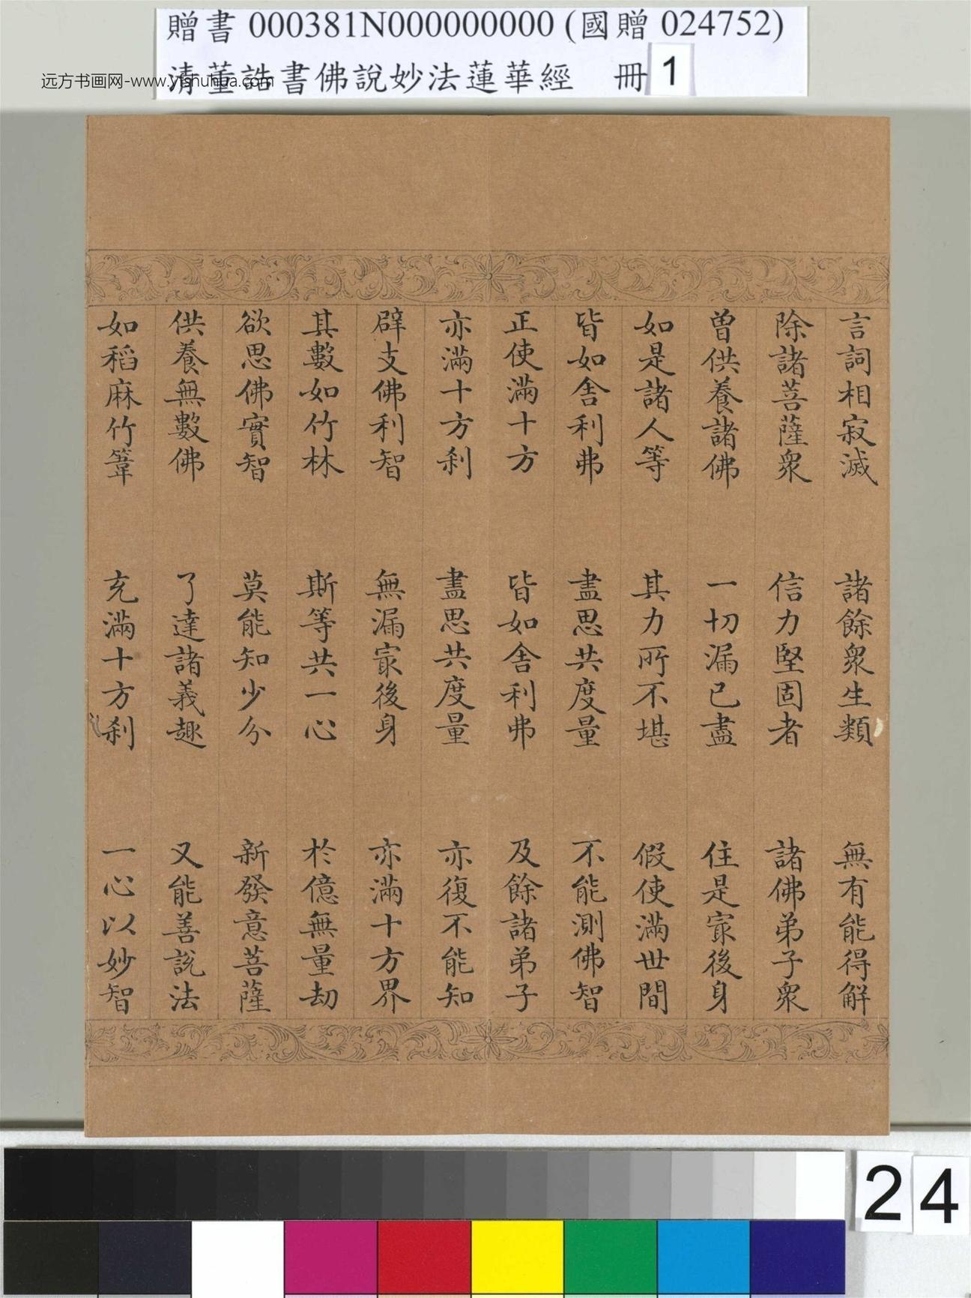 贈書 000381N000000000 (國贈 024752)
清董誥書佛說妙法蓮華經 冊 1
远方书画网-www.yishuhua.com
言詞相寂滅 諸餘衆生類 無有能得解
除諸菩薩衆 信力堅固者 諸佛弟子衆
曾供養諸佛 一切漏已盡 住是㝡後身
如是諸人等 其力所不堪 假使滿世間
皆如舍利弗 盡思共度量 不能測佛智
正使滿十方 皆如舍利弗 及餘諸弟子
亦滿十方刹 盡思共度量 亦復不能知
辟支佛利智 無漏㝡後身 亦滿十方界
其數如竹林 斯等共一心 於億無量劫
欲思佛實智 莫能知少分 新發意菩薩
供養無數佛 了達諸義趣 又能善說法
如稻麻竹葦 充滿十方刹 一心以妙智
24